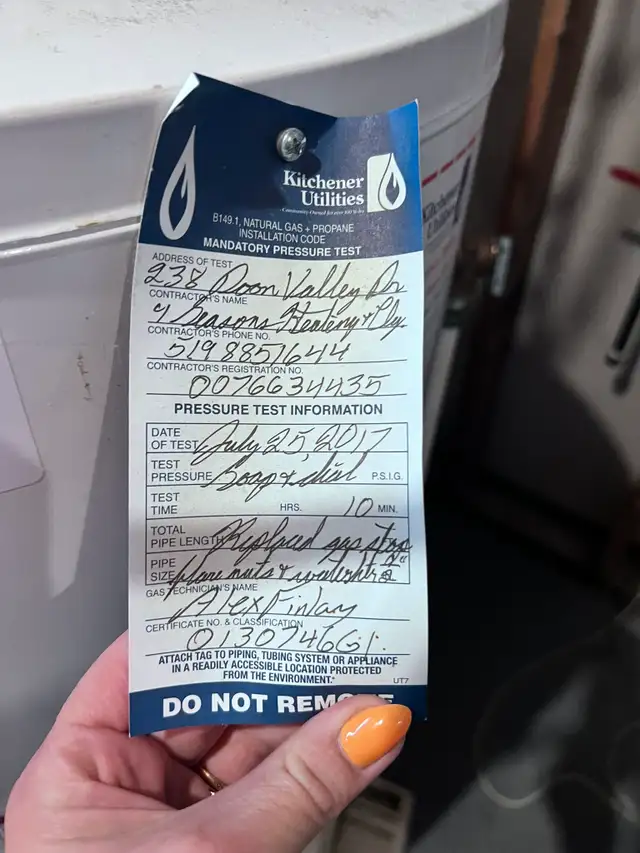 Kitchener
Utilities
B149.1, NATURAL GAS + PROPANE
INSTALLATION CODE
MANDATORY PRESSURE TEST
ADDRESS OF TEST
238 Doon Valley Dr
CONTRACTOR'S NAME
4 Seasons Heating + Plg.
CONTRACTOR'S PHONE NO.
519 8851644
CONTRACTOR'S REGISTRATION NO.
0076634435
PRESSURE TEST INFORMATION
DATE OF TEST July 25, 2017
TEST PRESSURE Soap + dial P.S.I.G.
TEST TIME HRS. 10 MIN.
TOTAL PIPE LENGTH Replaced gas stop
PIPE SIZE flare nuts +
GAS TECHNICIAN'S NAME
Alex Finlay
CERTIFICATE NO. & CLASSIFICATION
01307466
ATTACH TAG TO PIPING, TUBING SYSTEM OR APPLIANCE
IN A READILY ACCESSIBLE LOCATION PROTECTED
FROM THE ENVIRONMENT.
UT7
DO NOT